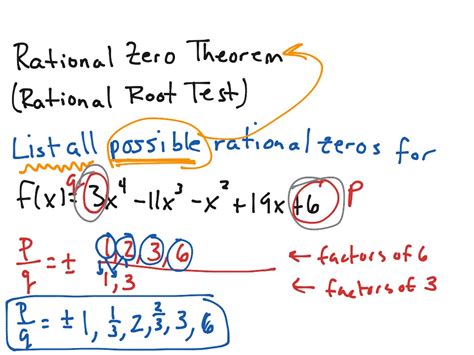 Rational Zero Theorem
(Rational Root Test)
List all possible rational zeros for
q
f(x)= 3x⁴ -11x³ -x² +19x +6 P
P/q = ± 1, 2, 3, 6 ← factors of 6
1, 3 ← factors of 3
P/q = ± 1, 1/3, 2, 2/3, 3, 6